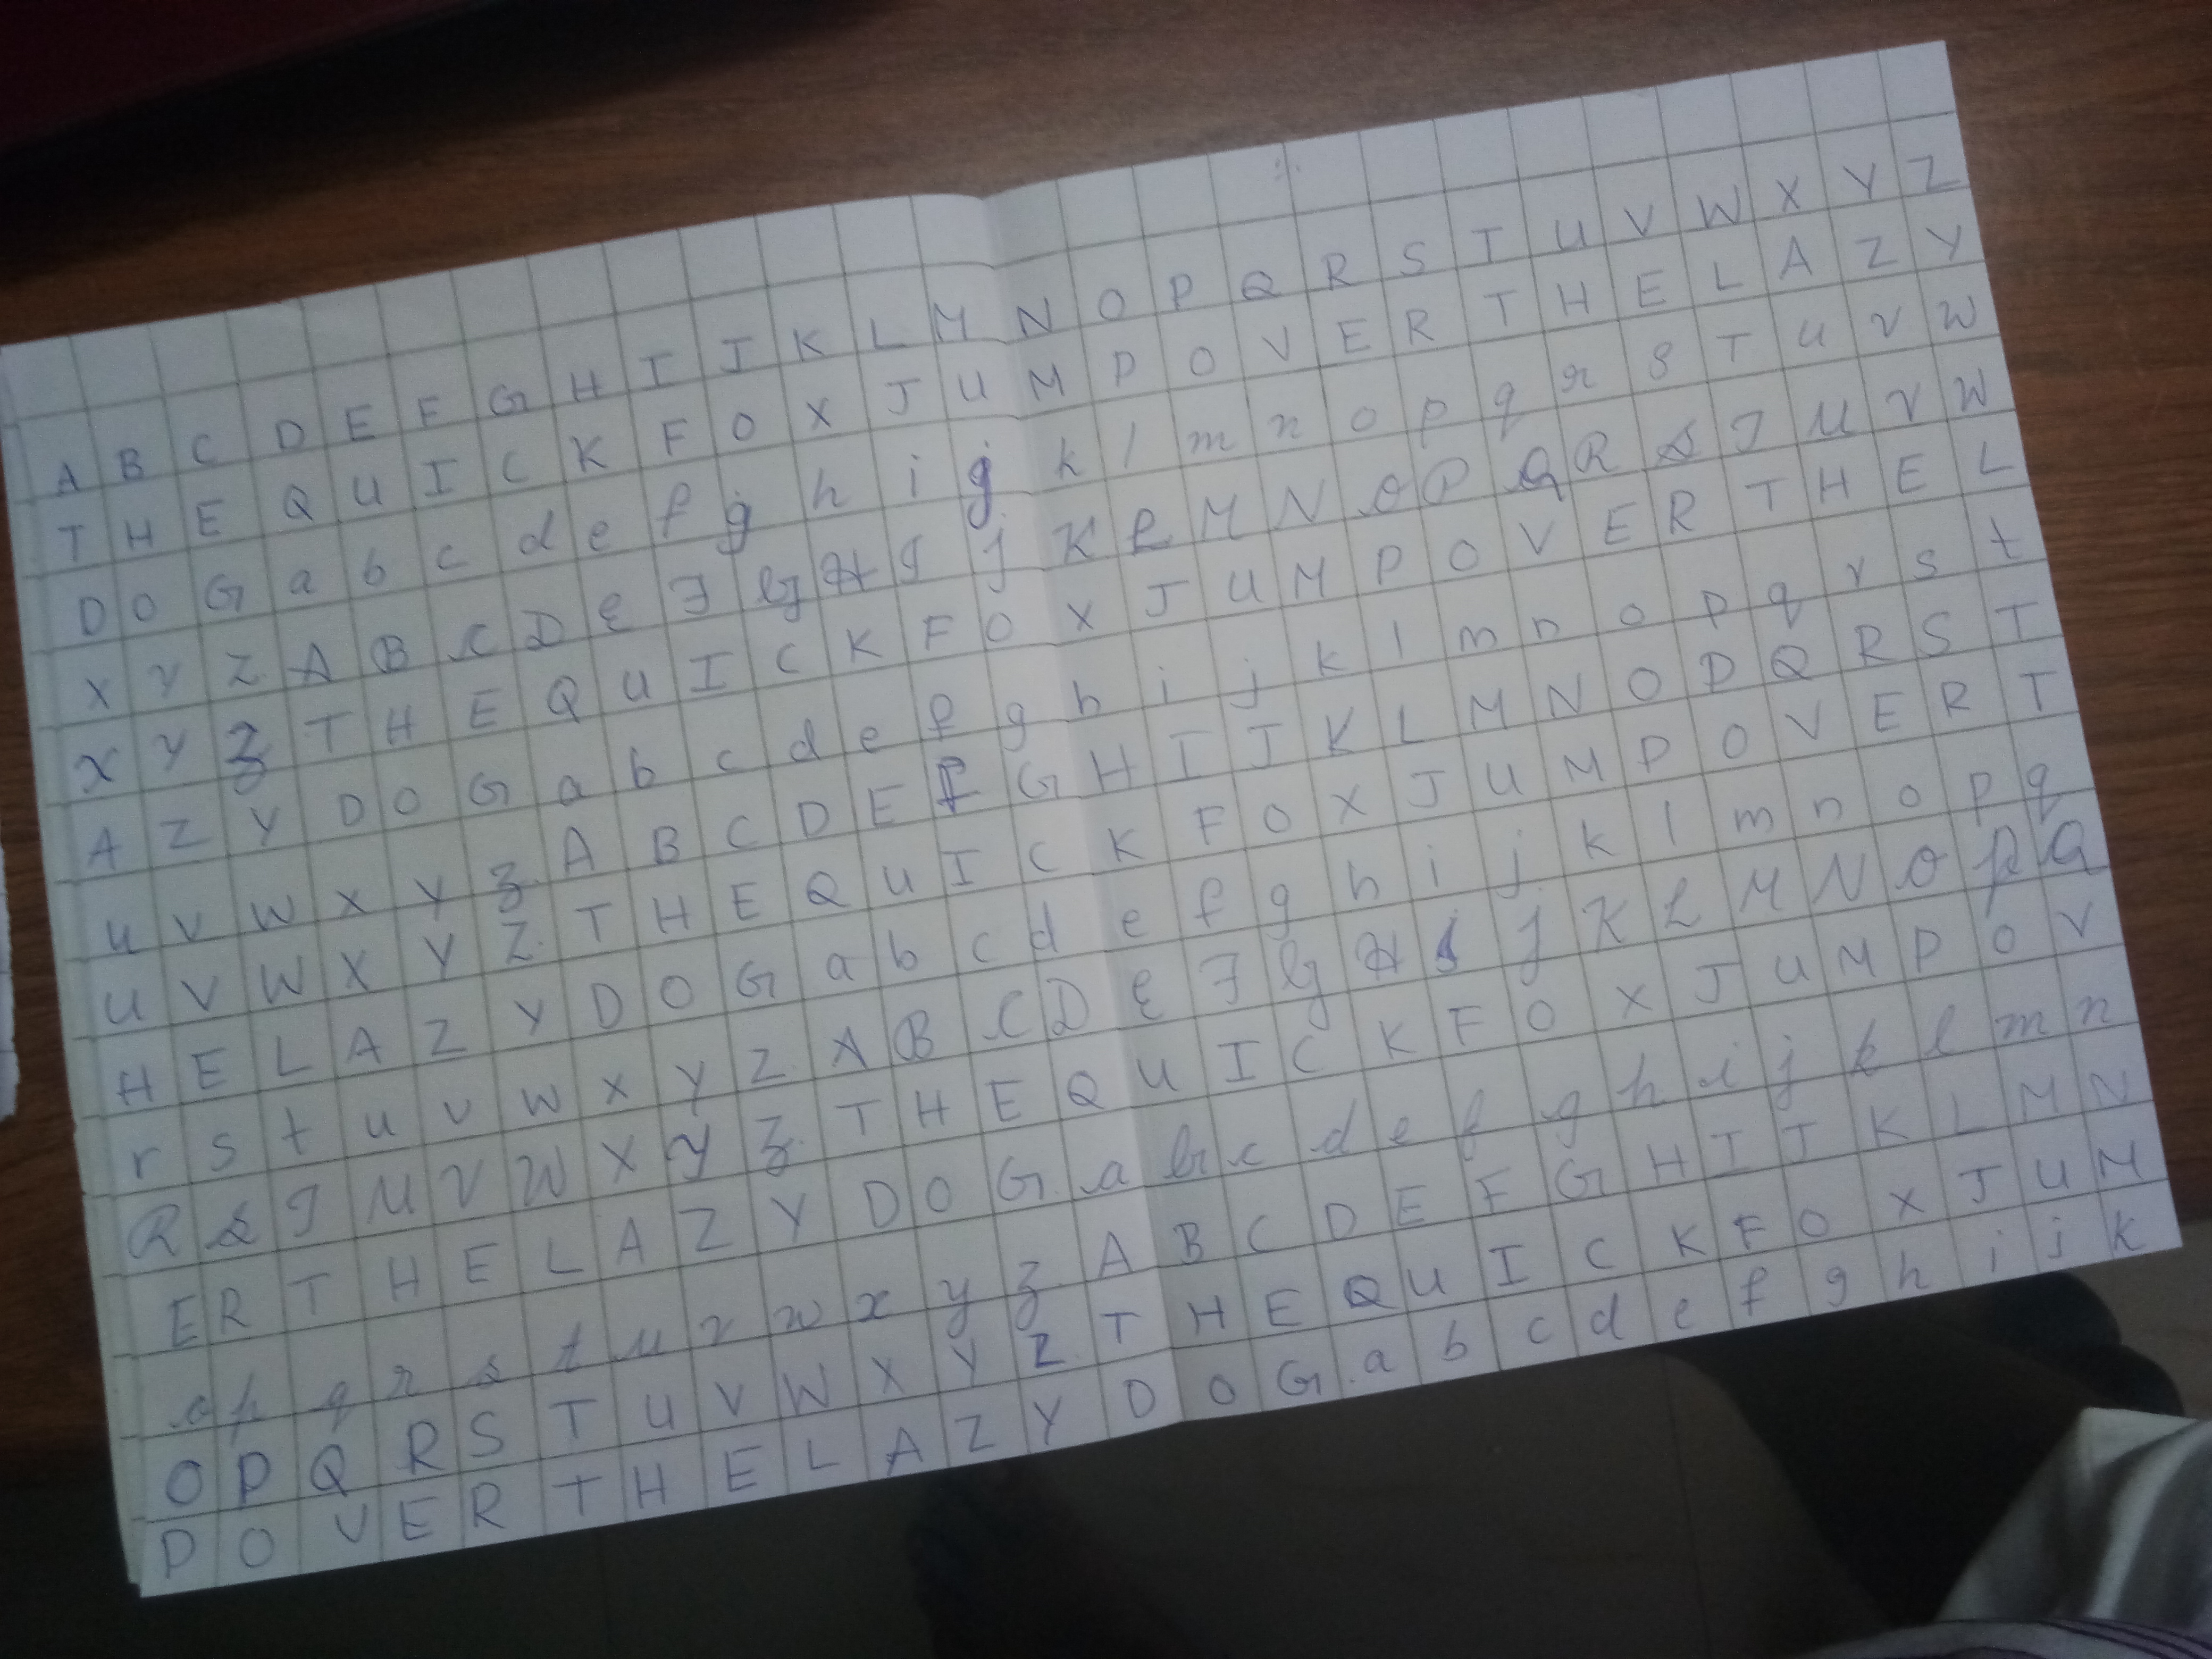 A B C D E F G H I J K L M N O P Q R S T U V W X Y Z
T H E Q U I C K F O X J U M P O V E R T H E L A Z Y
D O G a b c d e f g h i j k l m n o p q r s T u v w
x y z A B C D E F G H I J K L M N O P Q R S T U V W
X Y Z T H E Q U I C K F O X J U M P O V E R T H E L
A Z Y D O G a b c d e f g h i j k l m n o p q r s t
u v w x y z A B C D E F G H I J K L M N O P Q R S T
U V W X Y Z T H E Q U I C K F O X J U M P O V E R T
H E L A Z Y D O G a b c d e f g h i j k l m n o p q
r s t u v w x y z A B C D E F G H I J K L M N O P Q
R S T U V W X Y Z T H E Q U I C K F O X J U M P O V
E R T H E L A Z Y D O G a b c d e f g h i j k l m n
o p q r s t u v w x y z A B C D E F G H I J K L M N
O P Q R S T U V W X Y Z T H E Q U I C K F O X J U M
P O V E R T H E L A Z Y D O G a b c d e f g h i j k